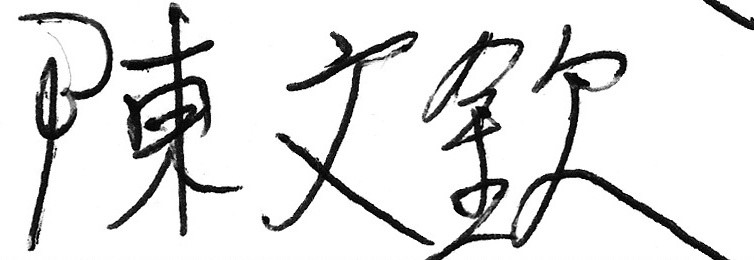 陳文欽